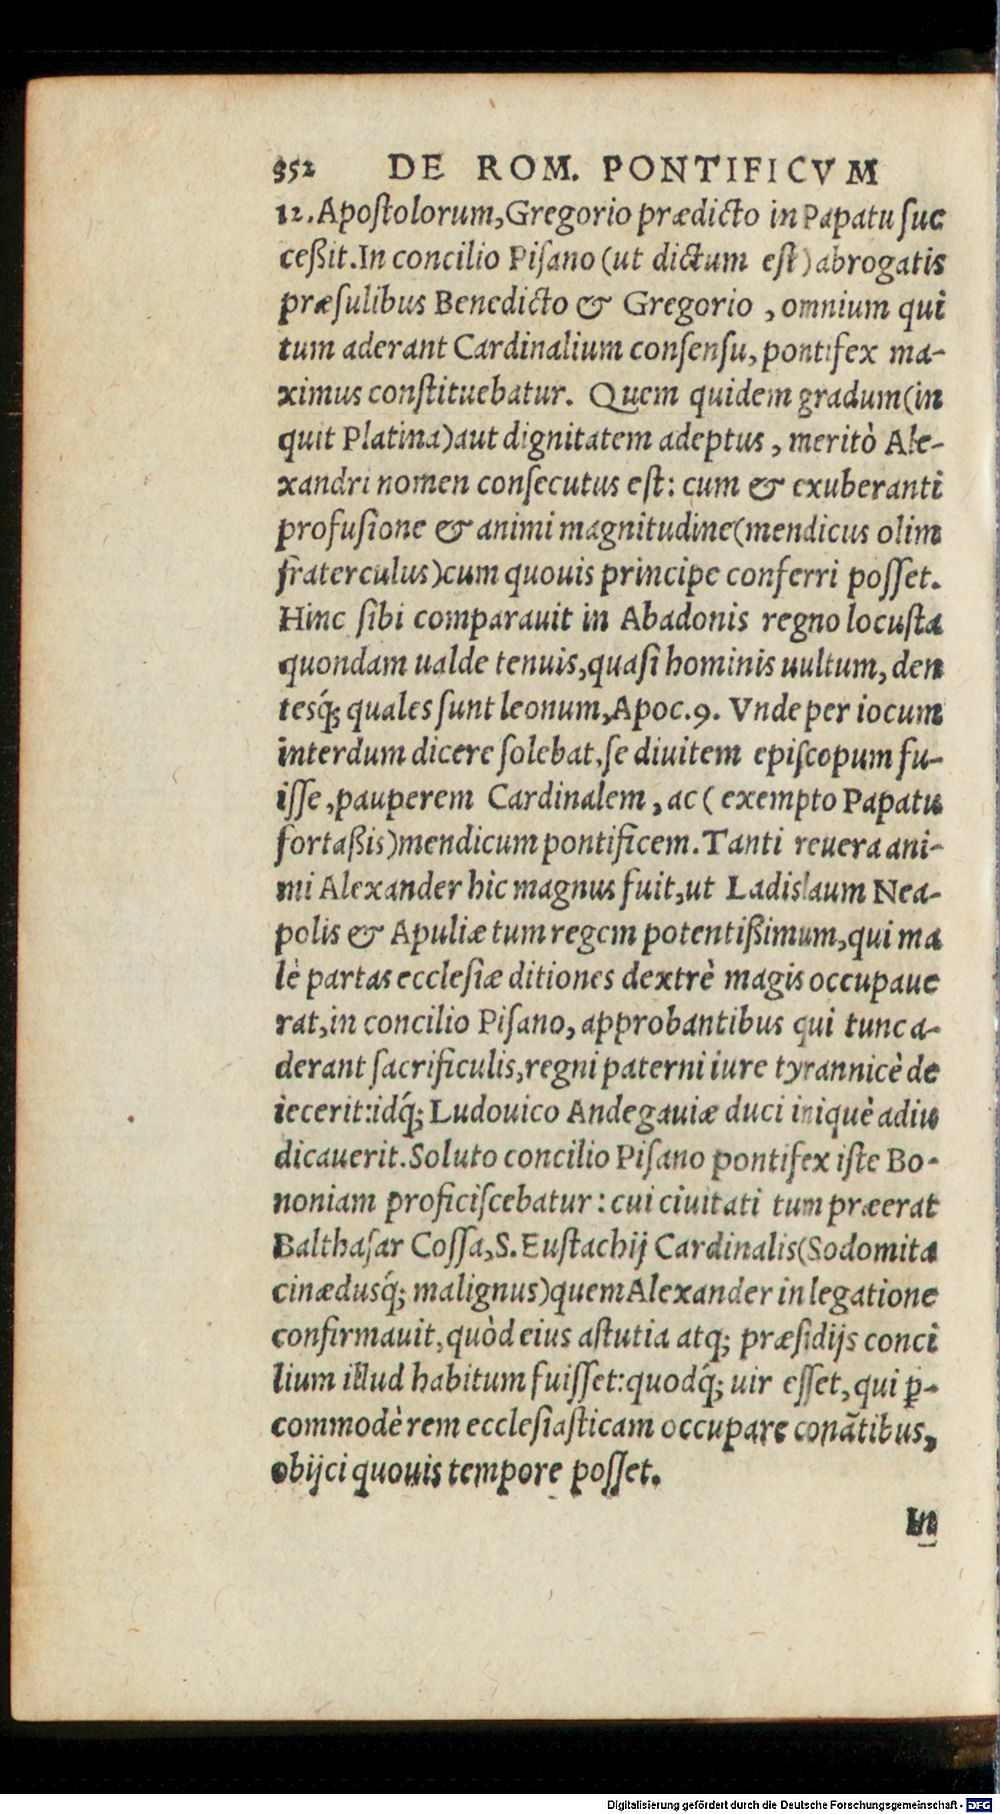 352 DE ROM. PONTIFICVM
12. Apoſtolorum, Gregorio prædicto in Papatu ſuc
ceßit. In concilio Piſano (ut dictum eſt) abrogatis
præſulibus Benedicto & Gregorio, omnium qui
tum aderant Cardinalium conſenſu, pontifex ma-
ximus conſtituebatur. Quem quidem gradum (in
quit Platina) aut dignitatem adeptus, meritò Ale-
xandri nomen conſecutus eſt: cum & exuberanti
profuſione & animi magnitudine (mendicus olim
fraterculus) cum quouis principe conferri poſſet.
Hinc ſibi comparauit in Abadonis regno locuſta
quondam ualde tenuis, quaſi hominis uultum, den
tesq́; quales ſunt leonum, Apoc. 9. Vnde per iocum
interdum dicere ſolebat, ſe diuitem epiſcopum fu-
iſſe, pauperem Cardinalem, ac (exempto Papatu
fortaßis) mendicum pontificem. Tanti reuera ani-
mi Alexander hic magnus fuit, ut Ladislaum Nea-
polis & Apuliæ tum regem potentißimum, qui ma
lè partas eccleſiæ ditiones dextrè magis occupaue
rat, in concilio Piſano, approbantibus qui tunc a-
derant ſacrificulis, regni paterni iure tyrannicè de
iecerit: idq́; Ludouico Andegauiæ duci iniquè adiu
dicauerit. Soluto concilio Piſano pontifex iſte Bo-
noniam proficiſcebatur: cui ciuitati tum præerat
Balthaſar Coſſa, S. Euſtachij Cardinalis (Sodomita
cinædusq́; malignus) quem Alexander in legatione
confirmauit, quòd eius aſtutia atq; præſidijs conci
lium illud habitum fuiſſet: quodq́; uir eſſet, qui ꝑ-
commodè rem eccleſiaſticam occupare conãtibus,
obijci quouis tempore poſſet.
In
Digitalisierung gefördert durch die Deutsche Forschungsgemeinschaft - DFG